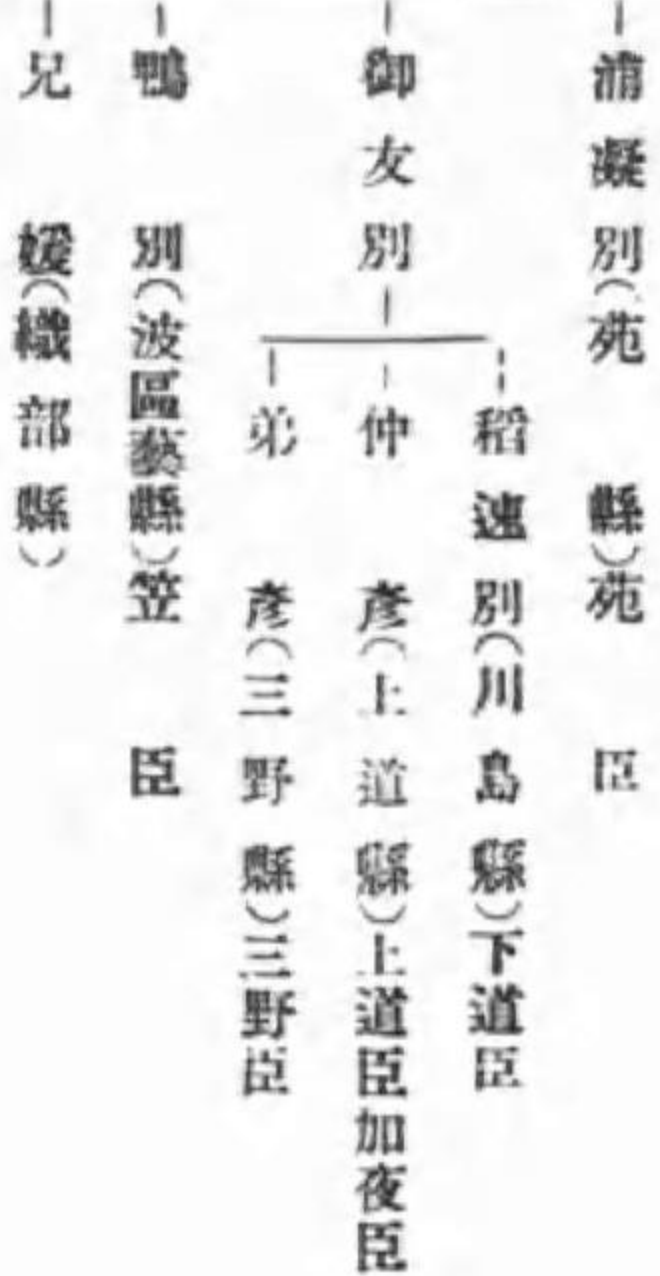 浦凝別(苑縣)苑臣
御友別
稻速別(川島縣)下道臣
仲彥(上道縣)上道臣加夜臣
弟彥(三野縣)三野臣
鴨別(波區藝縣)笠臣
兄媛(織部縣)